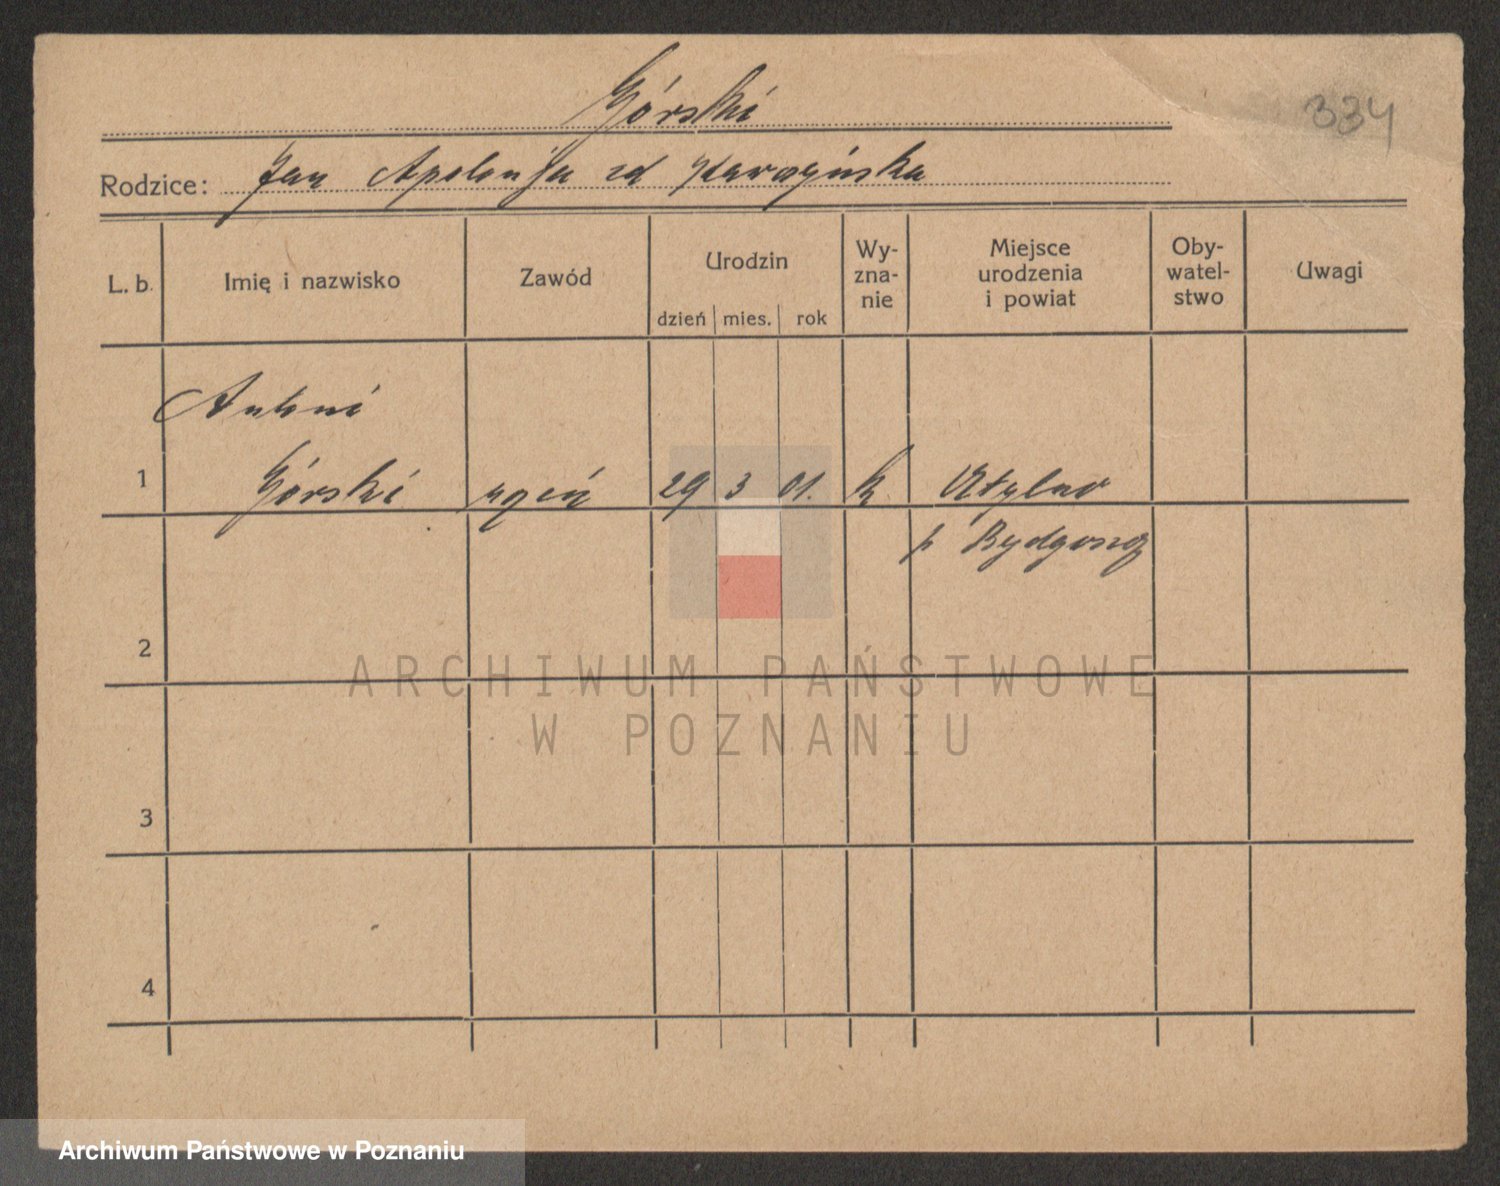 Górski
334
Rodzice: Jan Apolonja zd
L. b. Imię i nazwisko Zawód Urodzin dzień mies. rok Wy-zna-nie Miejsce urodzenia i powiat Oby-watel-stwo Uwagi
Antoni
1 Górski 29 3 01. k
p Bydgoszcz
2
ARCHIWUM PAŃSTWOWE
W POZNANIU
3
4
Archiwum Państwowe w Poznaniu